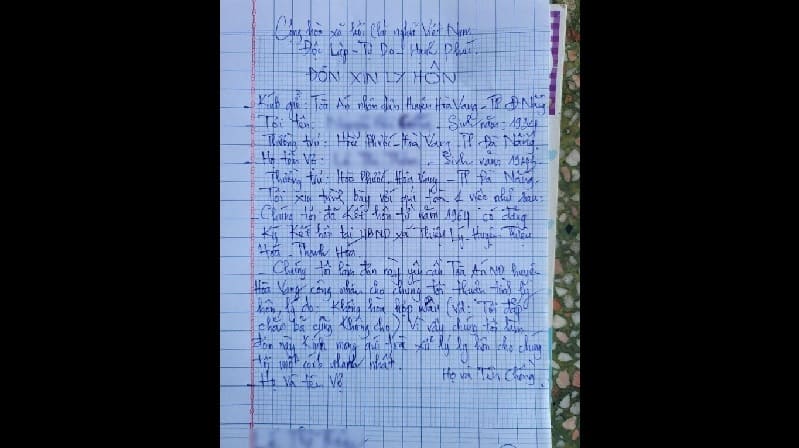 Cộng hòa xã hội chủ nghĩa Việt Nam
Độc Lập - Tự Do - Hạnh Phúc.
ĐƠN XIN LY HÔN
- Kính gửi: Tòa Án nhân dân Huyện Hòa Vang - TP Đ Nẵng
- Tôi tên: - Sinh năm: 1934
Thường trú: Hòa Phước - Hòa Vang - TP. Đà Nẵng.
- Họ tên Vợ: - Sinh năm
Thường trú: Hòa Phước, Hòa Vang - TP Đà Nẵng.
Tôi xin trình bày với quí tòa 1 việc như sau:
- Chúng tôi đã Kết hôn từ năm 1964 có đăng
Ký Kết hôn tại UBND xã Thiệu Lý - Huyện Thiệu
Hoá - Thanh Hóa
- Chúng tôi làm đơn này yêu cầu Tòa Án ND huyện
Hòa Vang công nhận cho chúng tôi thuận tình ly
hôn, lý do: Không hòa hợp (Vd: Tôi đắp
chăn bà cũng không cho) Vì vậy chúng tôi làm
đơn này Kính mong quí tòa xử lý ly hôn cho chúng
tôi một cách nhanh nhất.
- Họ và tên Vợ Họ và Tên Chồng.